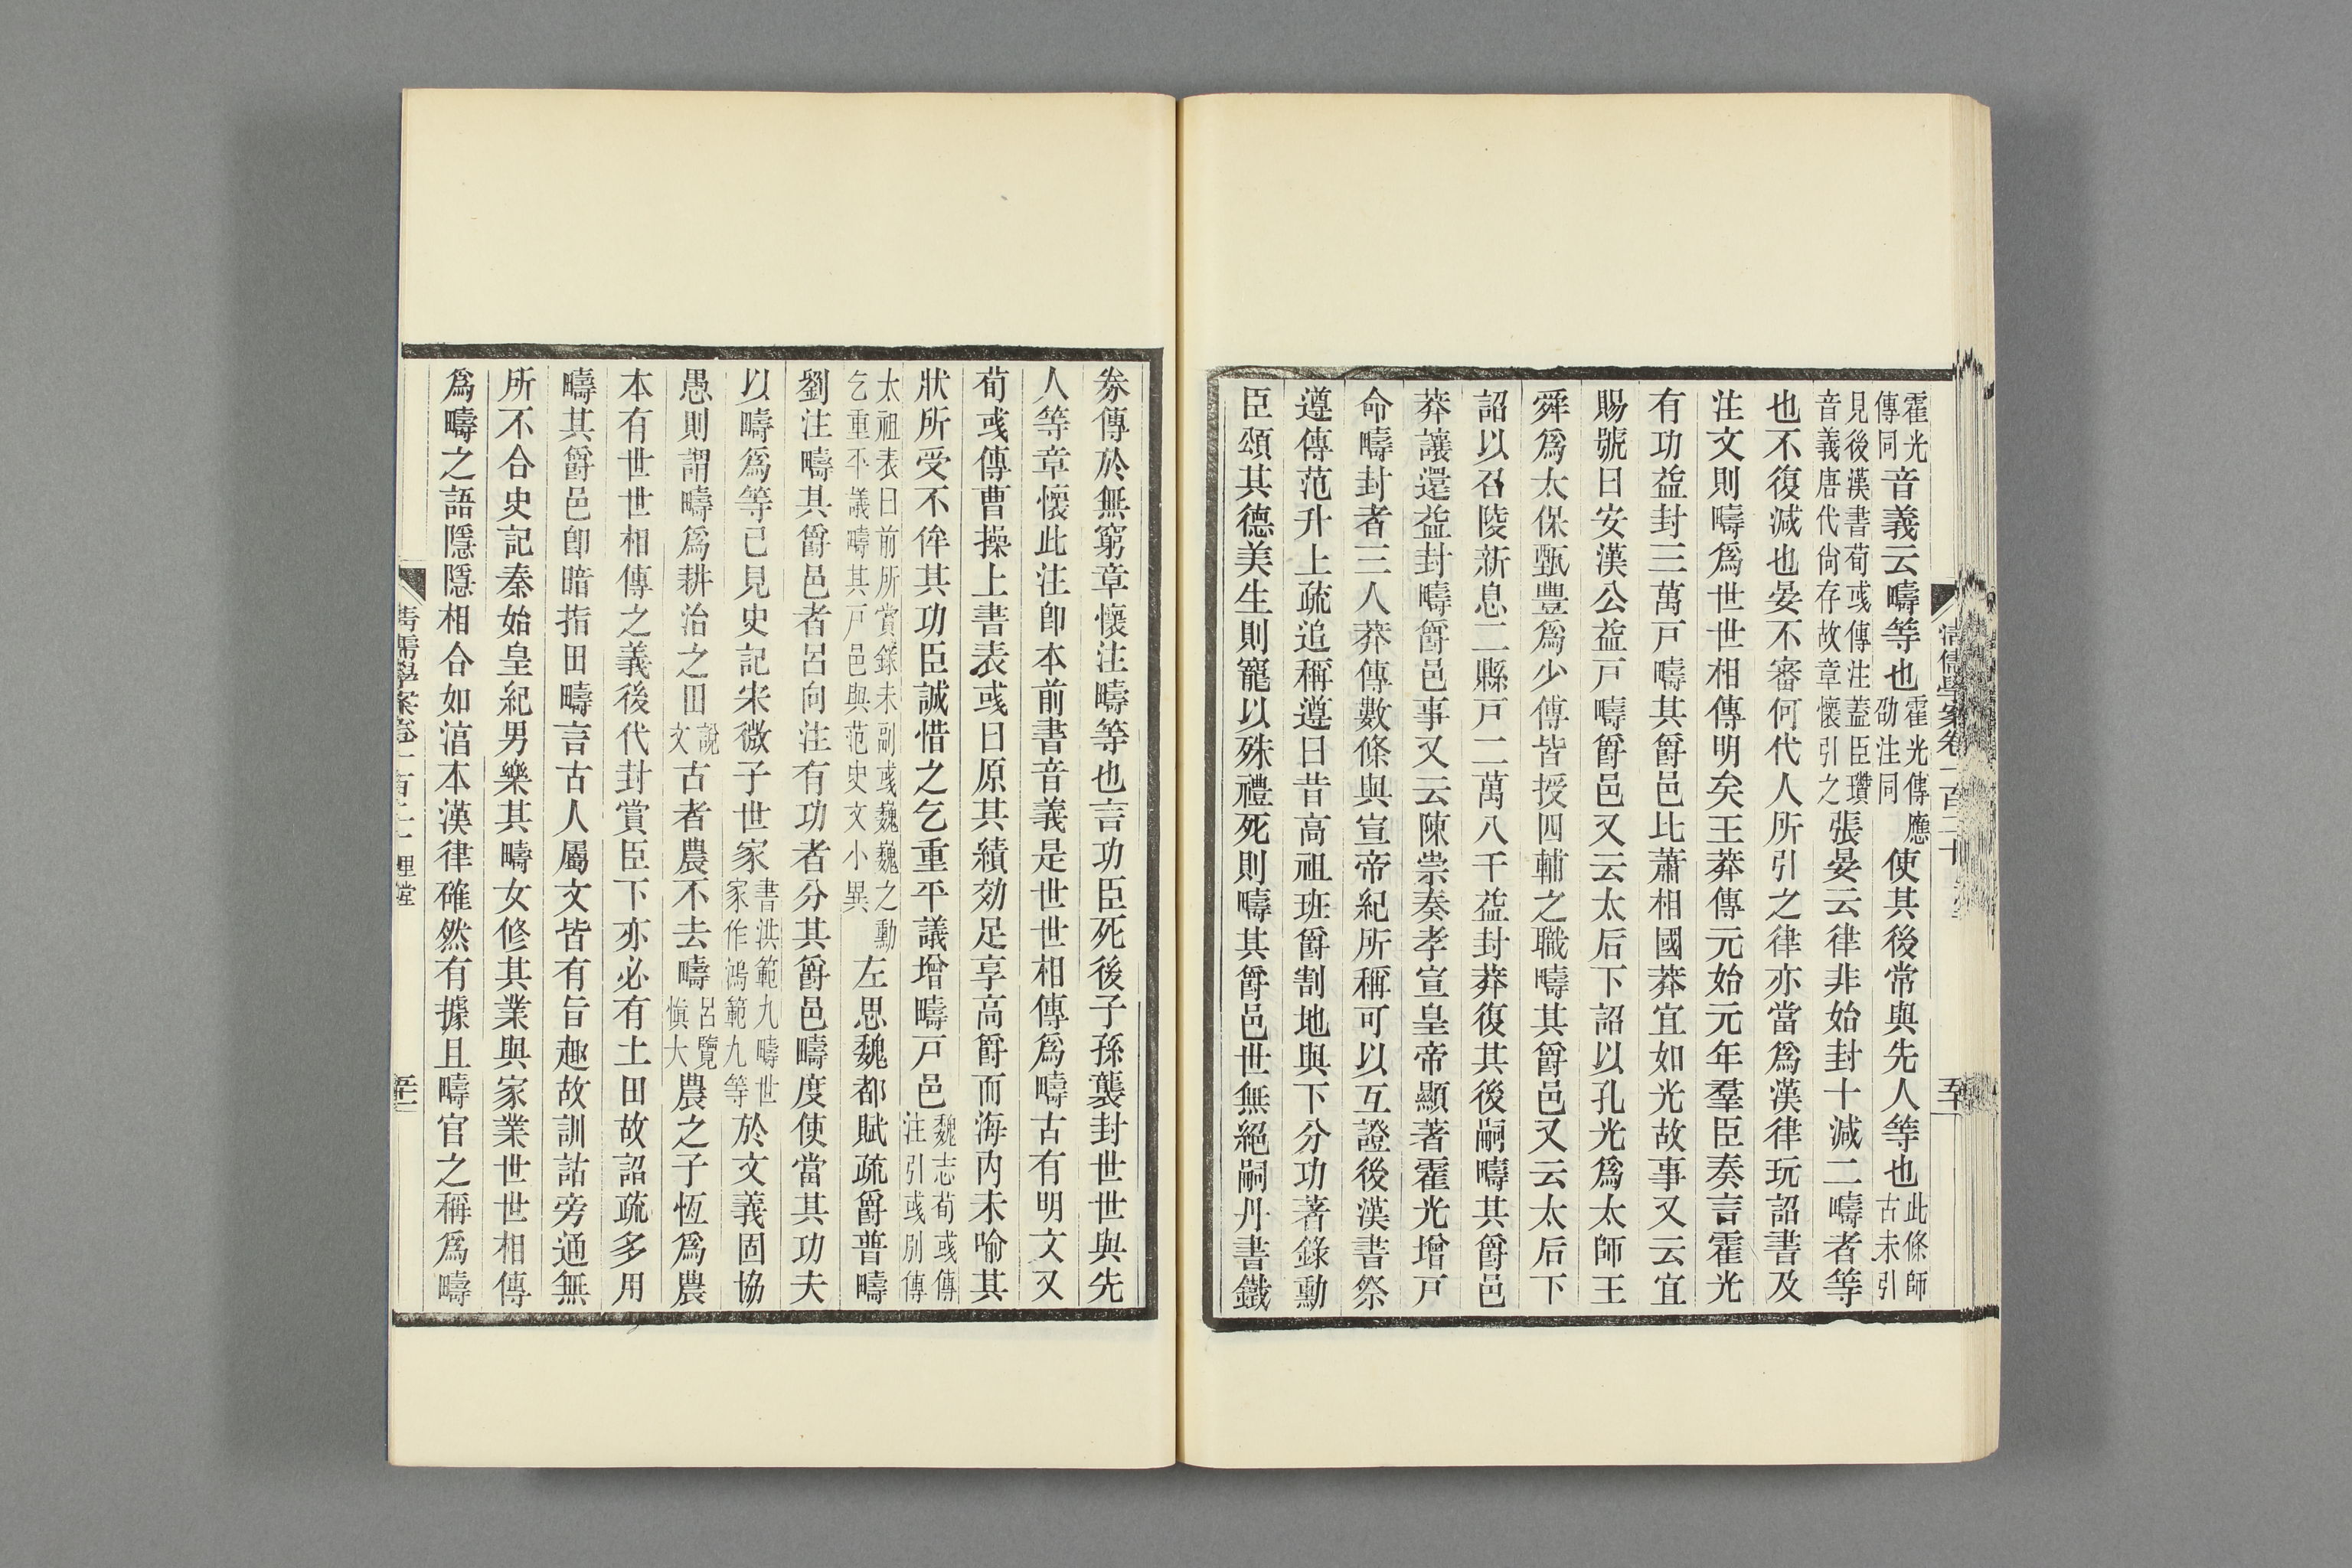 霍光傳同音義云疇等也霍光傳應劭注同使其後常與先人等也此條師古未引
見後漢書荀彧傳注蓋臣瓚音義唐代尙存故章懷引之張晏云律非始封十減二疇者等
也不復減也晏不審何代人所引之律亦當爲漢律玩詔書及
注文則疇爲世世相傳明矣王莽傳元始元年羣臣奏言霍光
有功益封三萬戸疇其爵邑比蕭相國莽宜如光故事又云宜
賜號曰安漢公益戸疇爵邑又云太后下詔以孔光爲太師王
舜爲太保甄豐爲少傅皆授四輔之職疇其爵邑又云太后下
詔以召陵新息二縣戸二萬八千益封莽復其後嗣疇其爵邑
莽讓還益封疇爵邑事又云陳崇奏孝宣皇帝顯著霍光增戸
命疇封者三人莽傳數條與宣帝紀所稱可以互證後漢書祭
遵傳范升上疏追稱遵曰昔高祖班爵割地與下分功著錄勳
臣頌其德美生則寵以殊禮死則疇其爵邑世無絕嗣丹書鐵
清儒學案卷一百二十 五十
券傳於無窮章懷注疇等也言功臣死後子孫襲封世世與先
人等章懷此注卽本前書音義是世世相傳爲疇古有明文又
荀彧傳曹操上書表彧曰原其績効足享高爵而海内未喻其
狀所受不侔其功臣誠惜之乞重平議增疇戸邑魏志荀彧傳注引彧別傳
太祖表曰前所賞錄未副彧巍巍之勳乞重平議疇其戸邑與范史文小異左思魏都賦疏爵普疇
劉注疇其爵邑者呂向注有功者分其爵邑疇度使當其功夫
以疇爲等己見史記宋微子世家書洪範九疇世家作鴻範九等於文義固協
愚則謂疇爲耕治之田說文古者農不去疇呂覽愼大農之子恆爲農
本有世世相傳之義後代封賞臣下亦必有土田故詔疏多用
疇其爵邑卽暗指田疇言古人屬文皆有旨趣故訓詁旁通無
所不合史記秦始皇紀男樂其疇女修其業與家業世世相傳
爲疇之語隱隱相合如㴖本漢律確然有據且疇官之稱爲疇
清儒學案卷一百二十 理堂 五十一